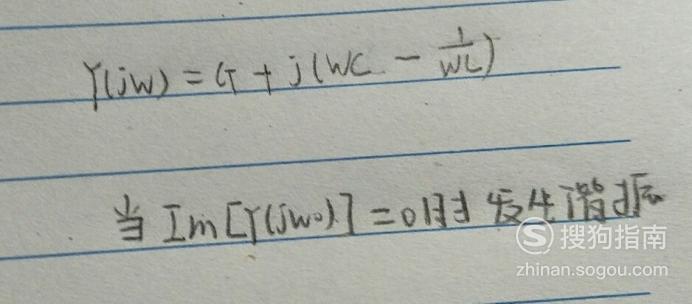 Y(jw) = G + j(wC - 1/wL)
当 Im[Y(jw₀)] = 0时 发生谐振
搜狗指南
zhinan.sogou.com